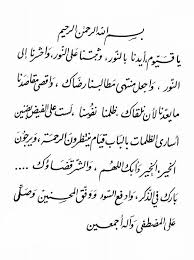 بسم الله الرحمن الرحيم
يا قيوم أيدنا بالنور، وثبتنا على النور، واحشرنا إلى
النور، واجعل منتهى مطالبنا رضاك، وأقصى مقاصدنا
ما يعدنا لأن نلقاك. ظلمنا نفوسنا، لست على الفيض بضنين
أسارى الظلمات بالباب قيام ينتظرون الرحمة، ويرجون
الخير. الخير دأبك اللهم، والشر قضاؤك ....
بارك في الذكر، وادفع السوء ووفق المحسنين وصلى
على المصطفى وآله أجمعين